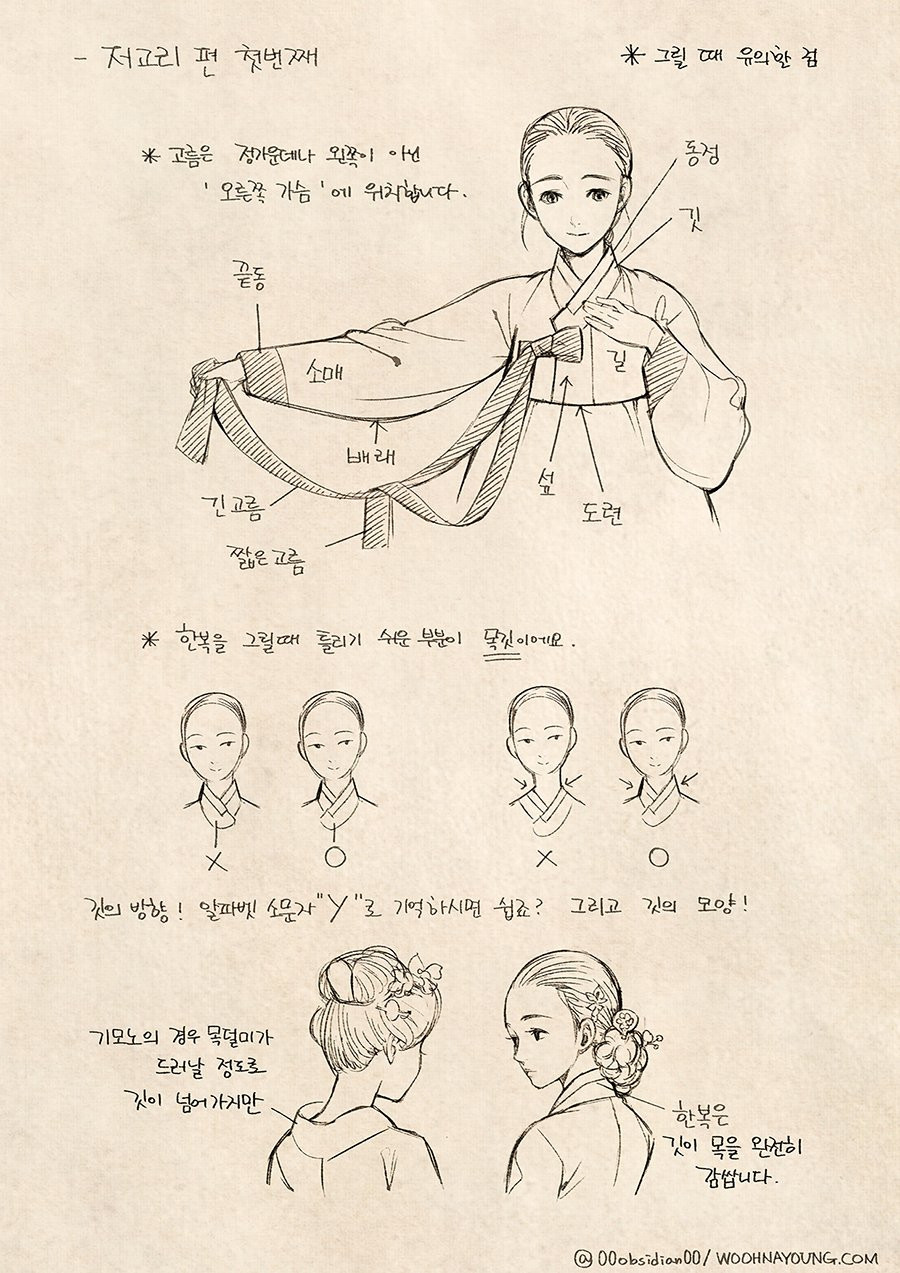 - 저고리 편 첫번째
* 그릴 때 유의할 점
* 고름은 정가운데나 왼쪽이 아닌
'오른쪽 가슴'에 위치합니다.
동정
깃
끝동
소매
길
배래
섶
도련
긴고름
짧은고름
* 한복을 그릴때 틀리기 쉬운 부분이 목깃이에요.
X
O
X
O
깃의 방향! 알파벳 소문자"y"로 기억하시면 쉽죠? 그리고 깃의 모양!
기모노의 경우 목덜미가
드러날 정도로
깃이 넘어가지만
한복은
깃이 목을 완전히
감쌉니다.
@00obsidian00/WOOHNAYOUNG.COM